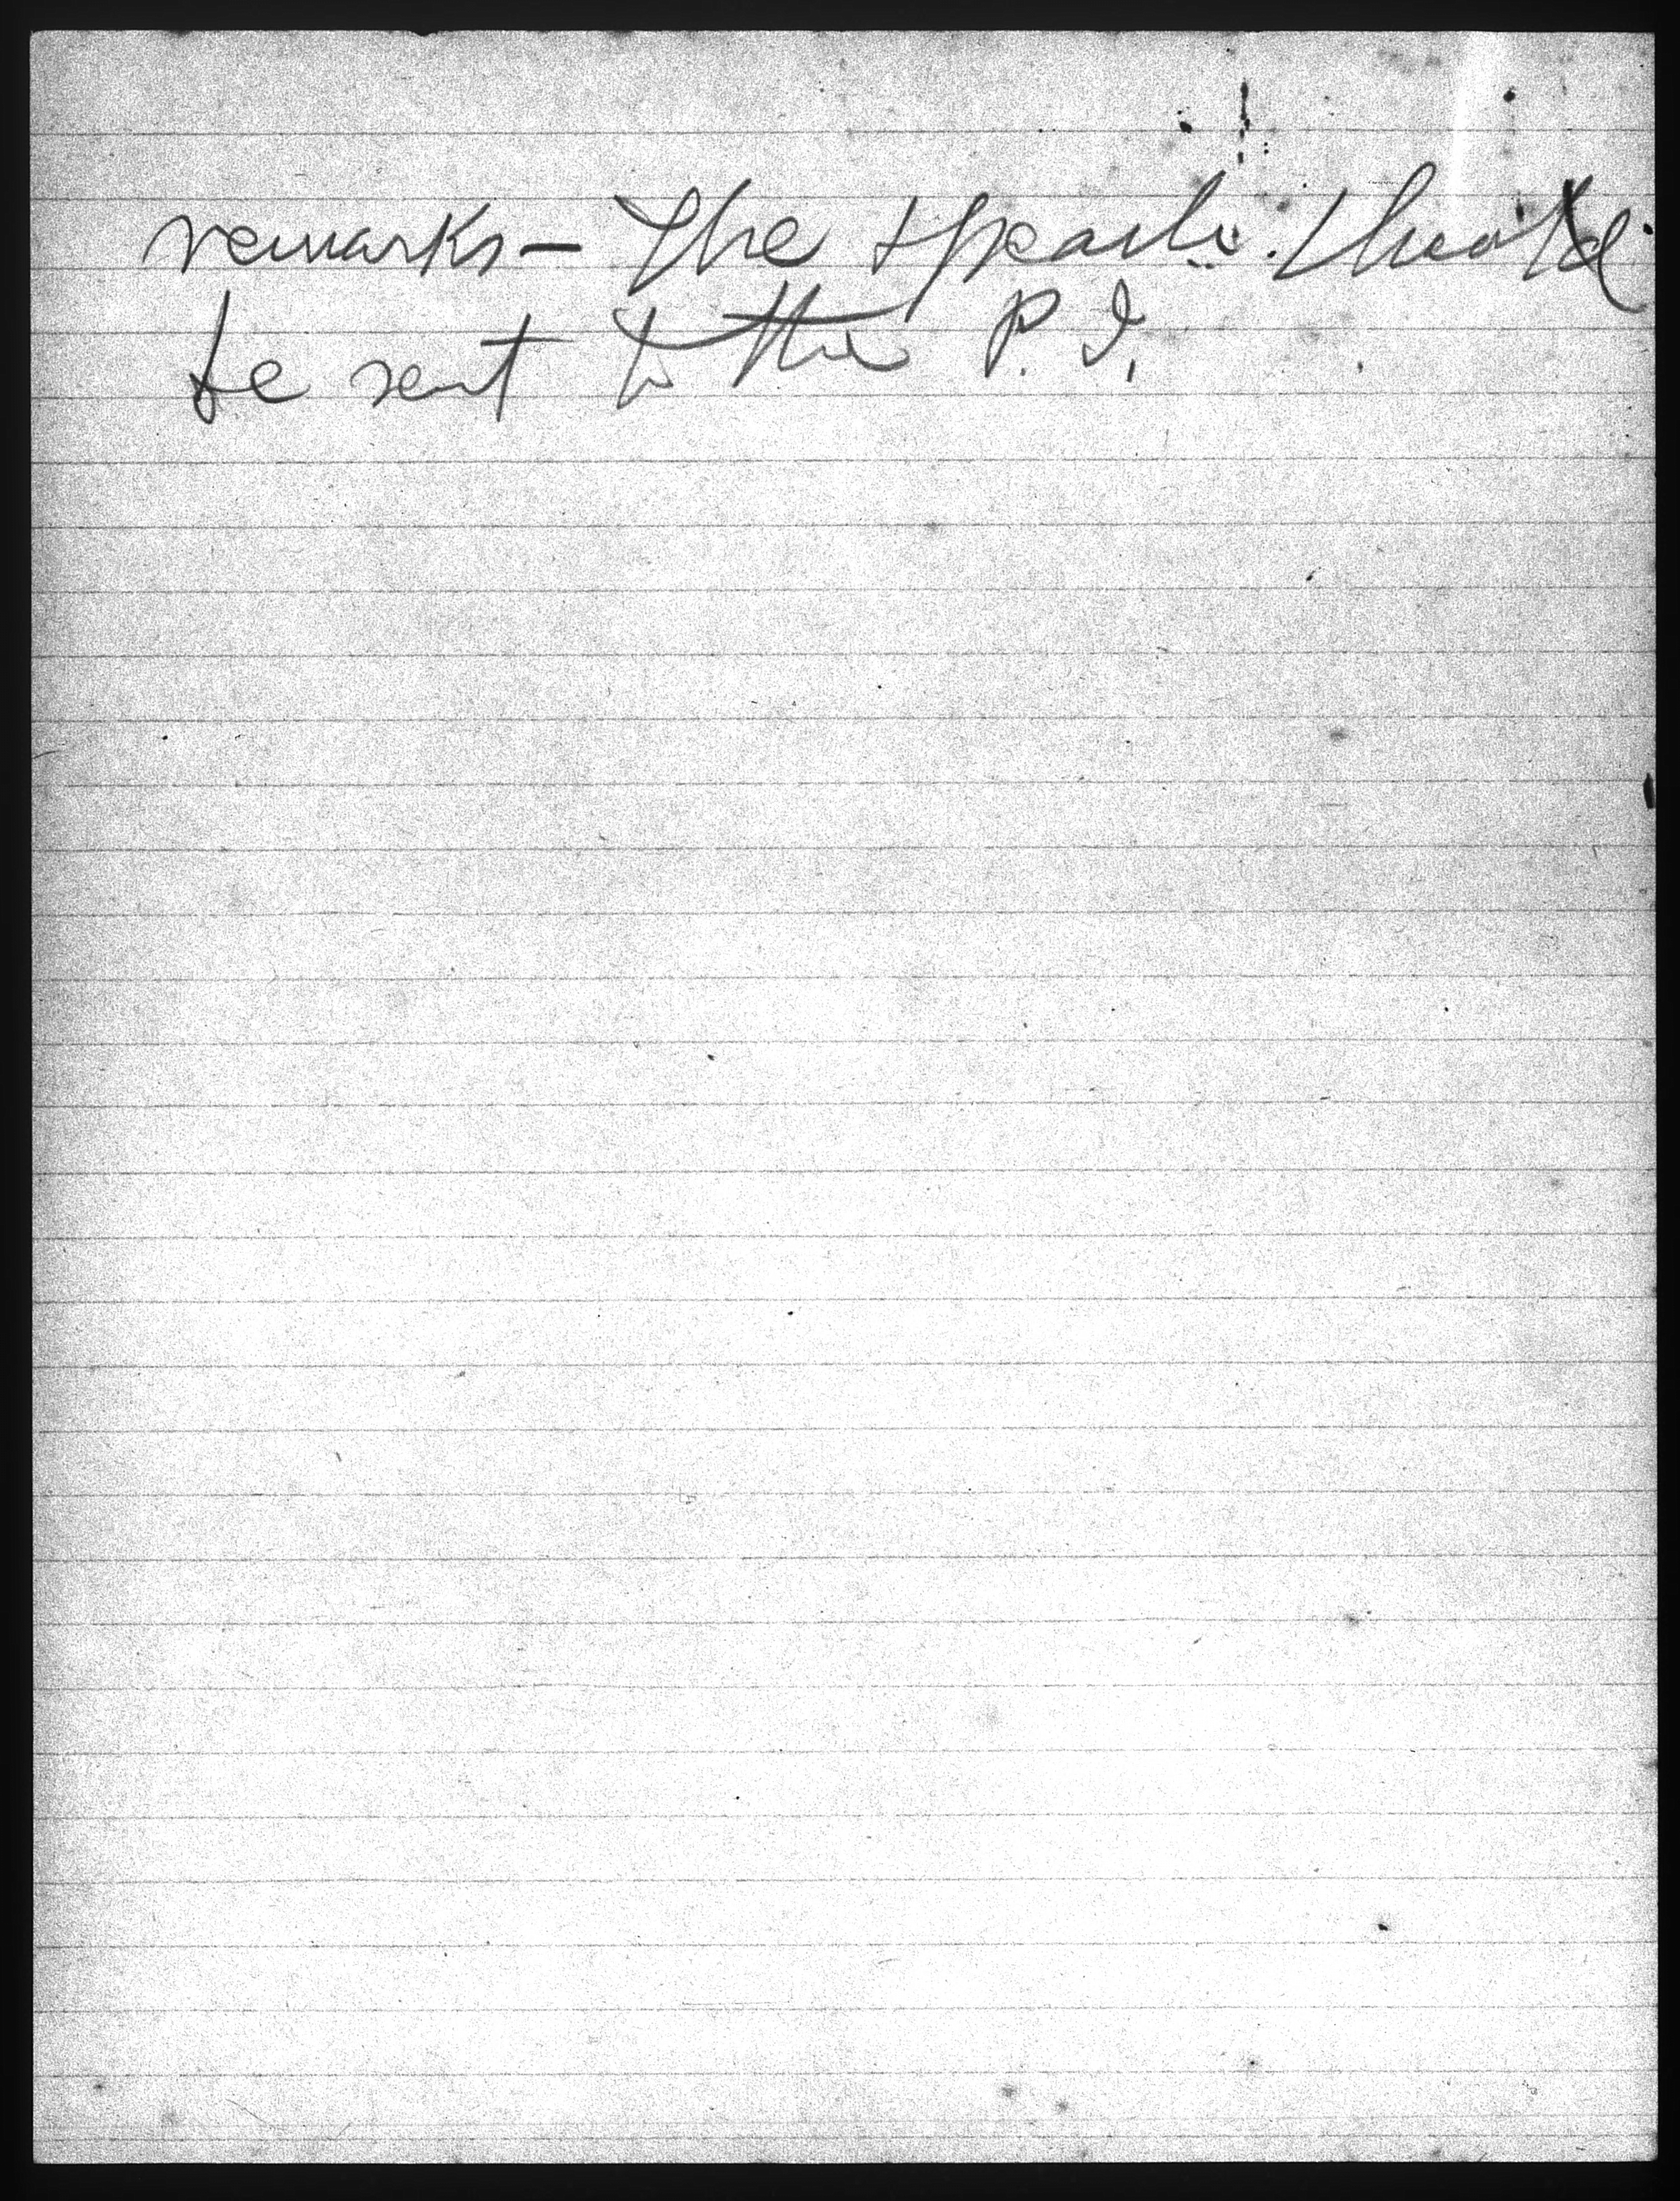 remarks— The speech should
be sent to the P. I.